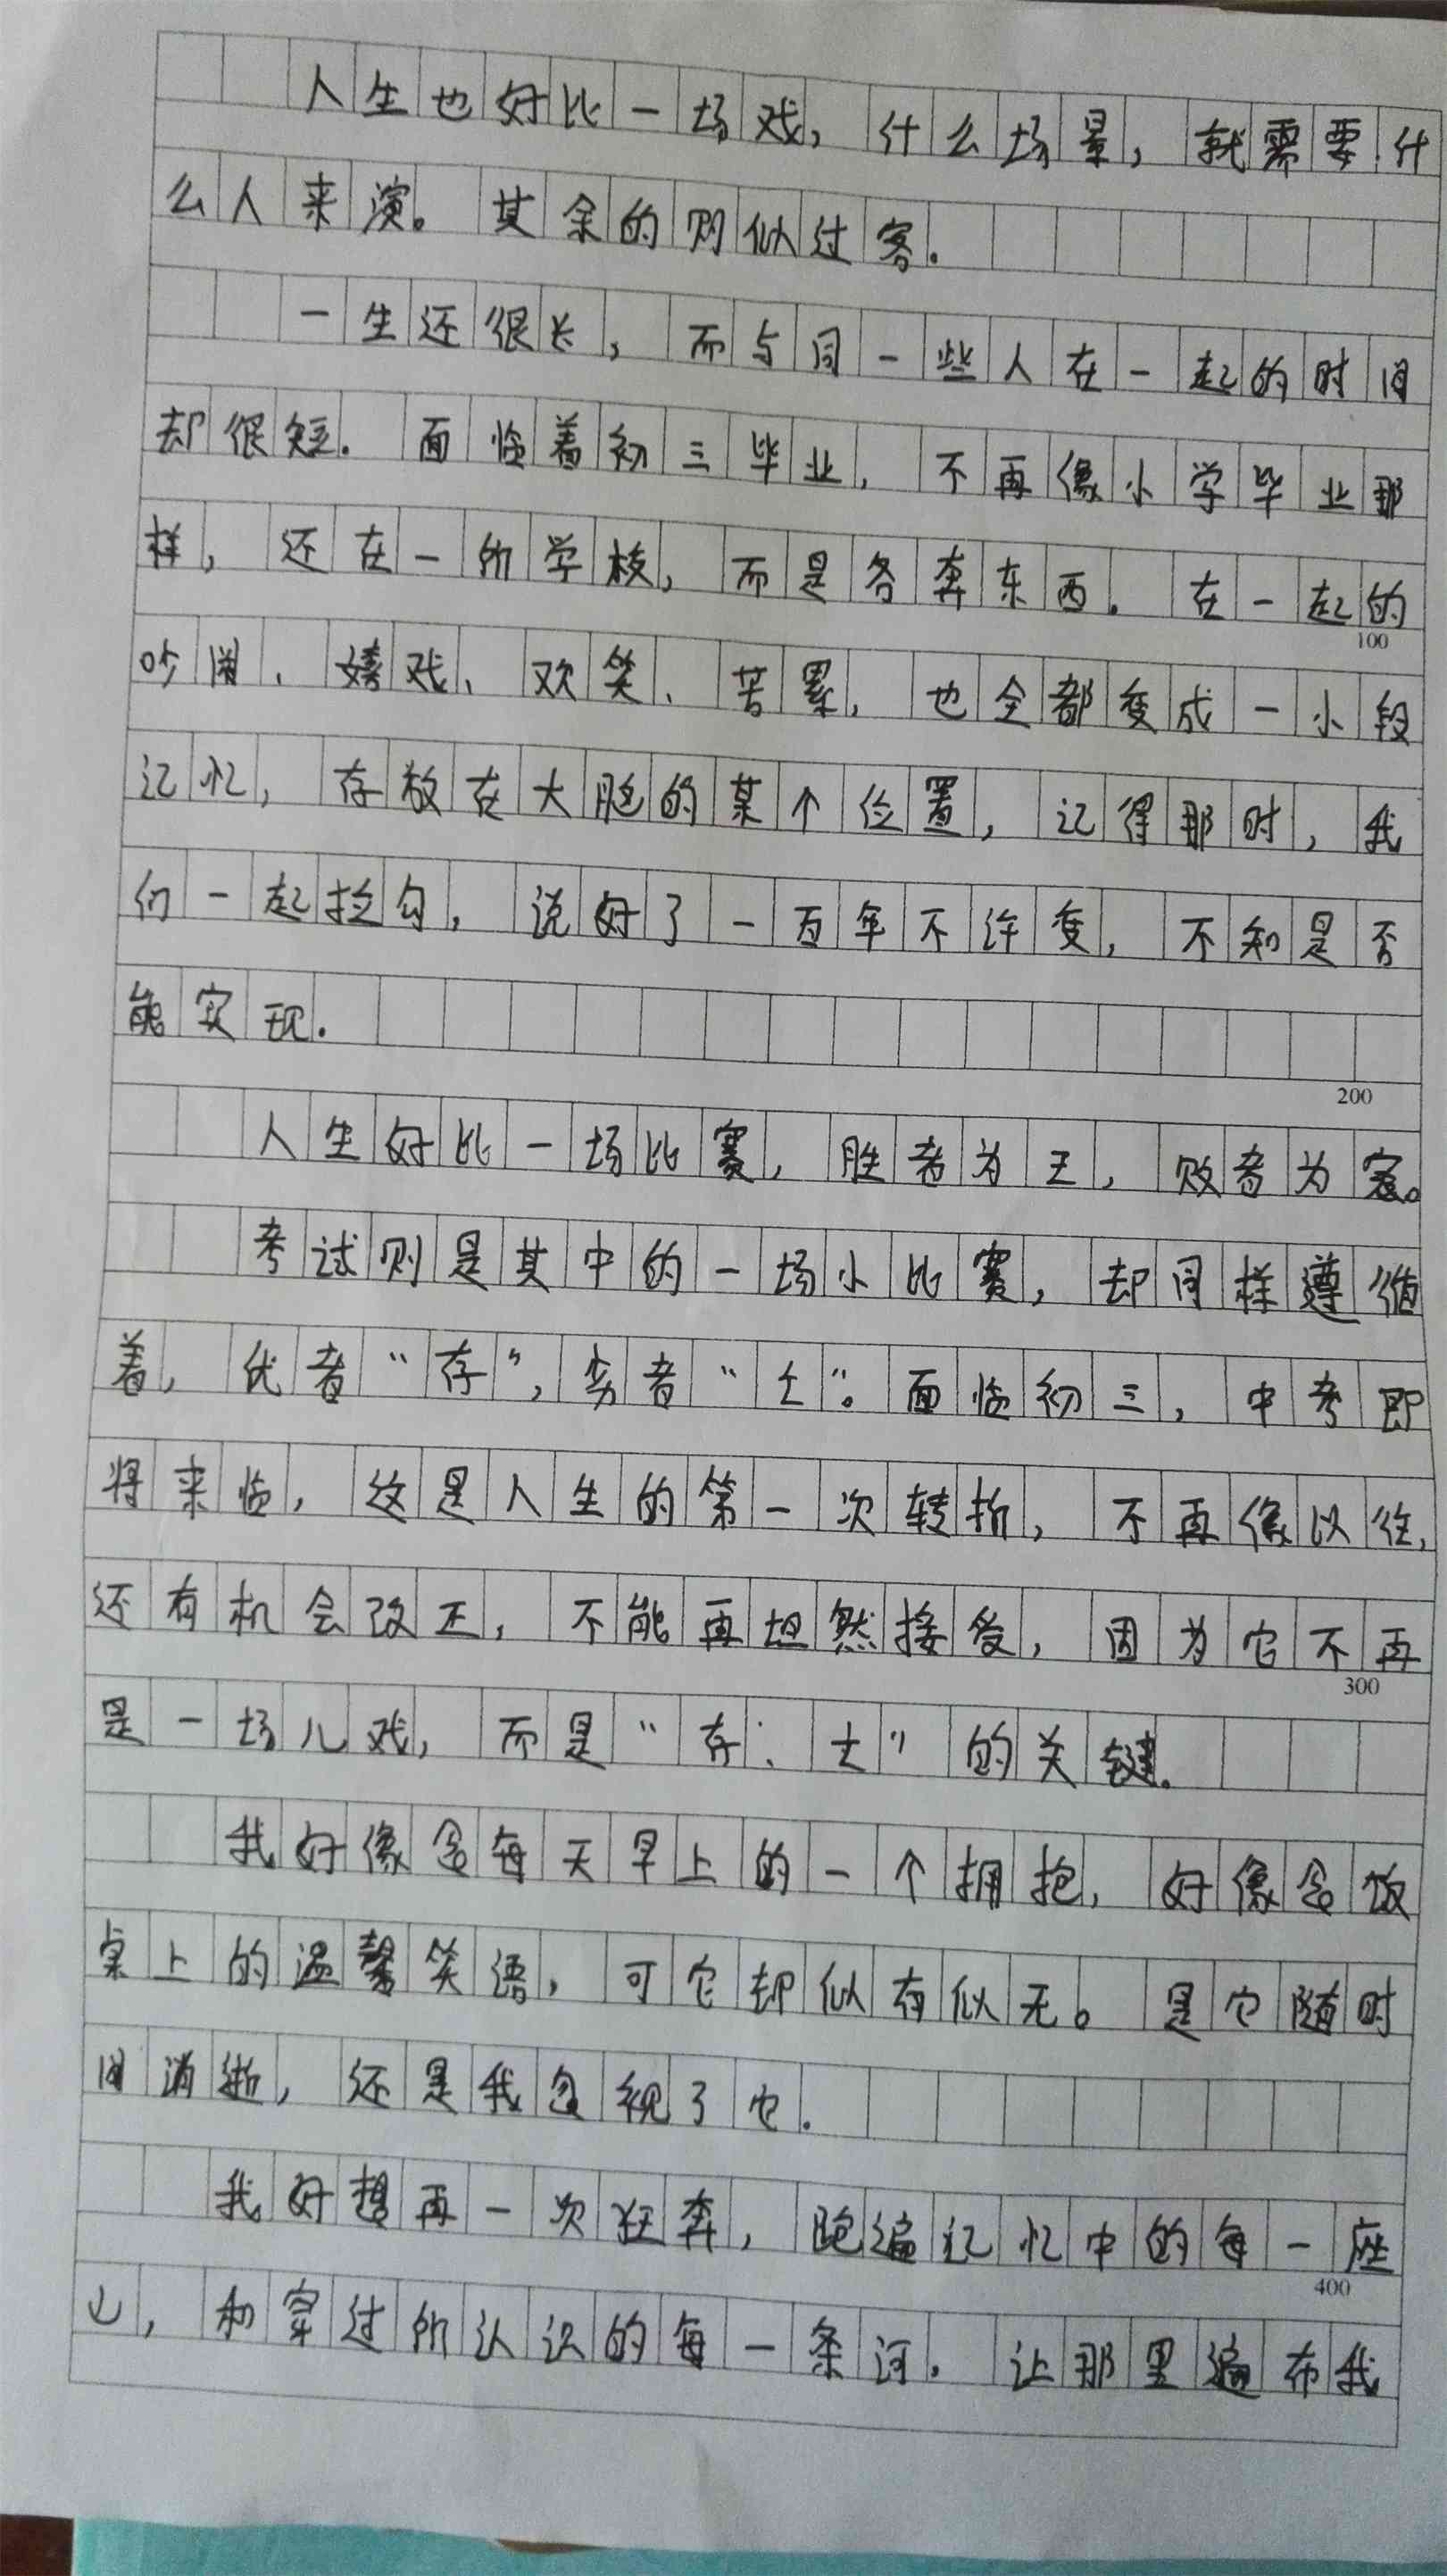 人生也好比一场戏，什么场景，就需要什
么人来演。其余的则似过客.
一生还很长，而与同一些人在一起的时间
却很短.面临着初三毕业，不再像小学毕业那
样，还在一所学校，而是各奔东西.在一起的
100
吵闹、嬉戏、欢笑、苦累，也全都变成一小段
记忆，存放在大脑的某个位置，记得那时，我
们一起拉勾，说好了一百年不许变，不知是否
能实现.
200
人生好比一场比赛，胜者为王，败者为寇。
考试则是其中的一场小比赛，却同样遵循
着，优者“存”，劣者“亡”。面临初三，中考即
将来临，这是人生的第一次转折，不再像以往，
还有机会改正，不能再坦然接受，因为它不再
300
是一场儿戏，而是“存、亡”的关键。
我好像念每天早上的一个拥抱，好像念饭
桌上的温馨笑语，可它却似有似无。是它随时
间消逝，还是我忽视了它.
我好想再一次狂奔，跑遍记忆中的每一座
400
山，和穿过所认识的每一条河.让那里遍布我